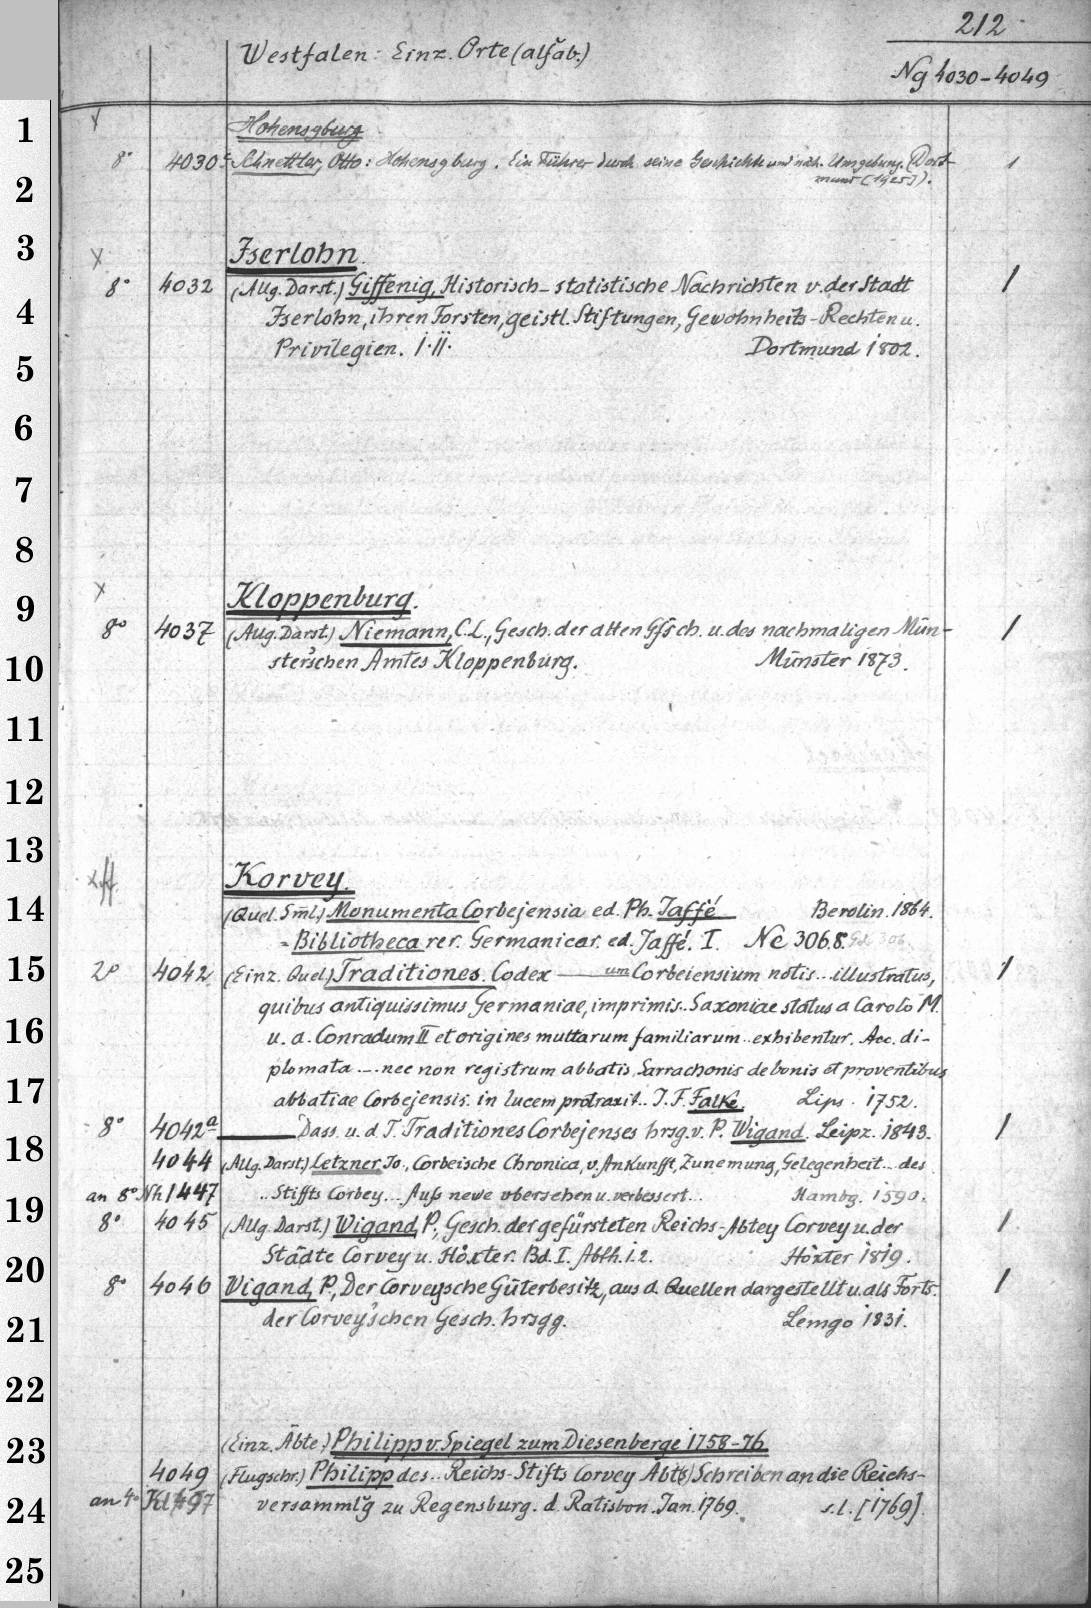 212
Westfalen: Einz. Orte (alfab.)
Ng 4030-4049
1
x Hohensyburg
8° 4030c Schnettler, Otto: Hohensyburg. Ein Führer durch seine Geschichte und näh. Umgebung. (Dort- 1
mund [1925]).
2
3
x Iserlohn.
8° 4032 (Allg. Darst.) Giffenig, Historisch-statistische Nachrichten v. der Stadt 1
4
Iserlohn, ihren Forsten, geistl. Stiftungen, Gewohnheits-Rechten u.
Privilegien. I.II. Dortmund 1802.
5
6
7
8
x Kloppenburg.
9
8° 4037 (Allg. Darst.) Niemann, C.L., Gesch. der alten Gfsch. u. des nachmaligen Mün- 1
ster'schen Amtes Kloppenburg. Münster 1873.
10
11
12
13
Korvey.
14
(Quel. Sml.) Monumenta Corbejensia ed. Ph. Jaffé Berolin. 1864.
= Bibliotheca rer. Germanicar. ed. Jaffé. I. Nc 306.8.
15
2° 4042 (Einz. Quel.) Traditiones. Codex — um Corbeiensium notis .. illustratus, 1
quibus antiquissimus Germaniae, imprimis .. Saxoniae status a Carolo M.
16
u. a. Conradum II et origines multarum familiarum .. exhibentur. Acc. di-
plomata .-. nec non registrum abbatis Sarrachonis de bonis et proventibus
17
abbatiae Corbejensis. in lucem protraxit .. J. F. Falke. Lips. 1752.
8° 4042a — Dass. u. d. T. Traditiones Corbejenses hrsg. v. P. Wigand. Leipz. 1843. 1
18
4044 (Allg. Darst.) Letzner Jo., Corbeische Chronica, v. Ankunfft, Zunemung, Gelegenheit .. des
an 8° Nh 1447 .. Stiffts Corbey ... Aufs newe vbersehen u. verbessert ... Hambg. 1590.
19
8° 4045 (Allg. Darst.) Wigand, P., Gesch. der gefürsteten Reichs-Abtey Corvey u. der 1
Städte Corvey u. Höxter. Bd. I. Abth. 1.2. Höxter 1819.
20
8° 4046 Wigand, P., Der Corveysche Güterbesitz, aus d. Quellen dargestellt u. als Forts. 1
der Corvey'schen Gesch. hrsgg. Lemgo 1831.
21
22
(Einz. Äbte.) Philipp v. Spiegel zum Diesenberge 1758-76.
23
4049 (Flugschr.) Philipp des .. Reichs-Stifts Corvey Abt(s) Schreiben an die Reichs-
an 4° versammlg zu Regensburg. d. Ratisbon. Jan. 1769. s.l. [1769].
24
25